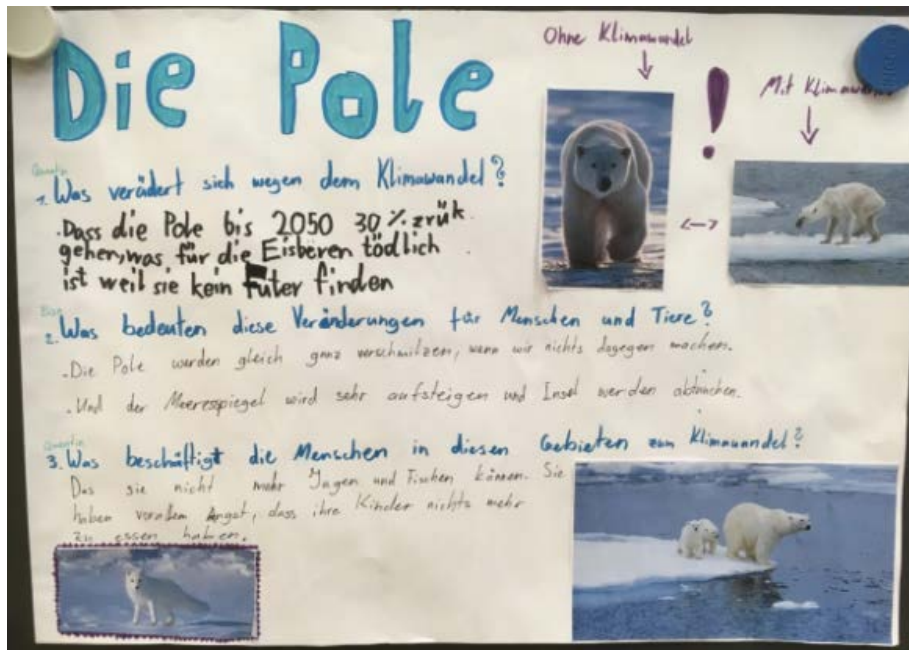 Die Pole
Ohne Klimawandel
Mit Klimawandel
Quentin
1. Was verädert sich wegen dem Klimawandel?
.Dass die Pole bis 2050 30% zrük
gehen, was für die Eisberen tödlich
ist weil sie kein Futer finden
2. Was bedeuten diese Veränderungen für Menschen und Tiere?
.Die Pole werden gleich ganz verschmilzen, wenn wir nichts dagegen machen.
.Und der Meeresspiegel wird sehr aufsteigen und Insel werden abtauchen.
Quentin
3. Was beschäftigt die Menschen in diesen Gebieten zum Klimawandel?
Das sie nicht mehr Jagen und Fischen können. Sie
haben vorallem Angst, dass ihre Kinder nichts mehr
zu essen haben.